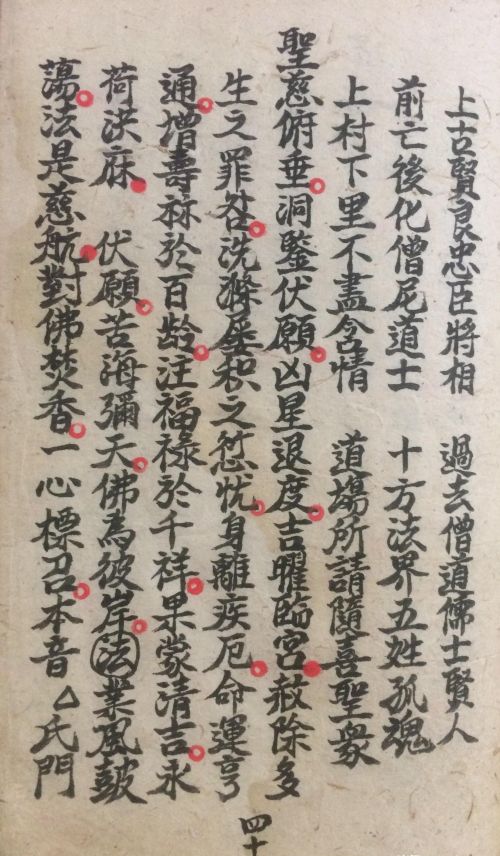 上古賢良忠臣將相　過去僧道儒士賢人
前亡後化僧尼道士　十方法界五姓孤魂
上村下里不盡含情　道場所請隨喜聖衆
聖慈俯垂洞鑒伏願凶星退度吉曜臨宮赦除多
生之罪咎洗滌屢积之愆忧身離疾厄命運亨
通增壽祘於百龄注福禄於千祥果蒙清吉永
荷洪庥　伏願苦海彌天佛為彼岸法業風鼓
蕩法是慈航對佛焚香一心標召本音厶氏門
四十